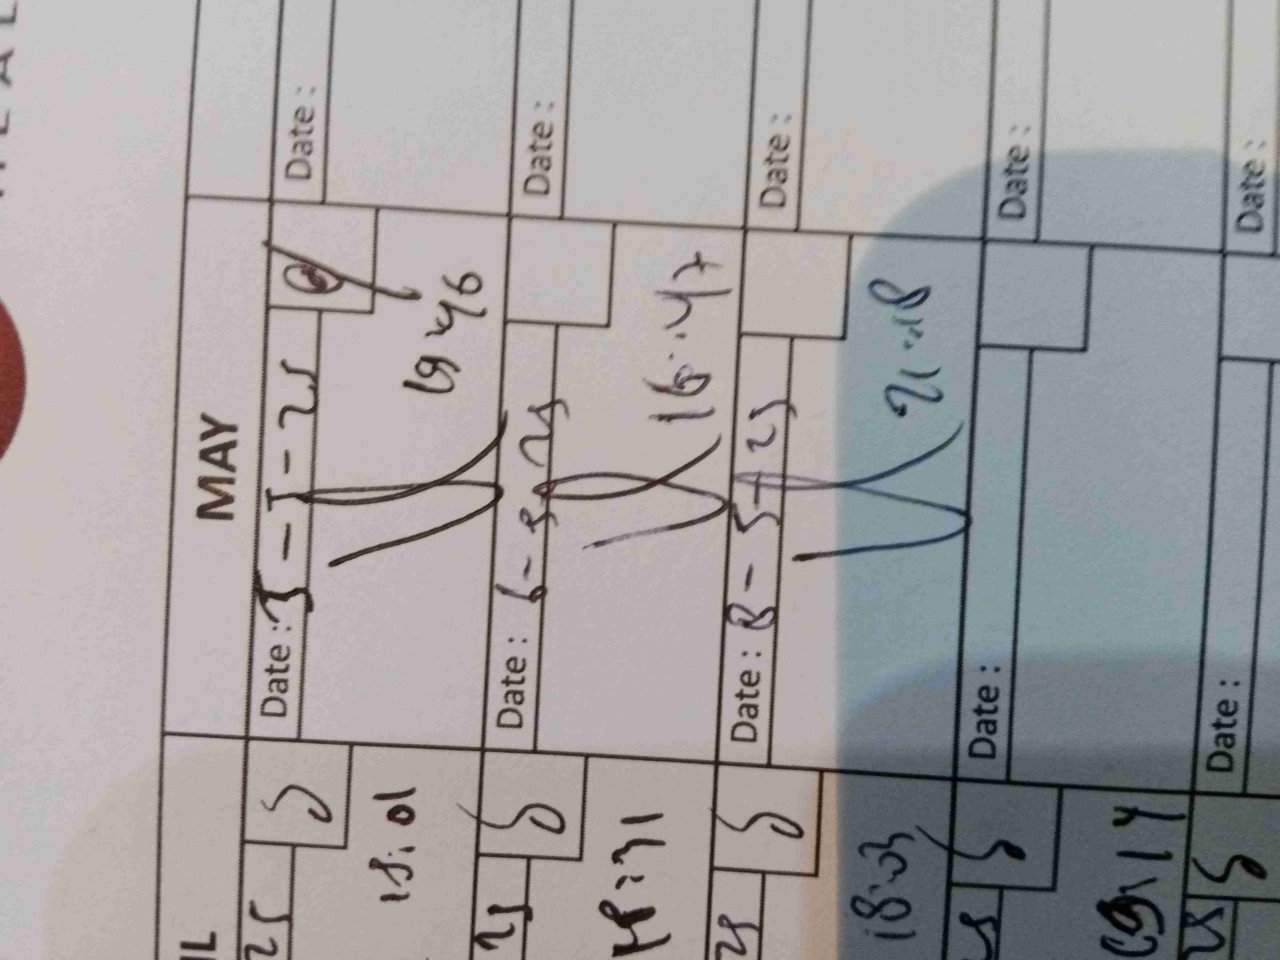 MAY
Date : 5-5-25
19:46
Date : 6-5-25
16:47
Date : 8-5-25
21:18
Date :
Date :
Date :
Date :
Date :
Date :
Date :
25
18:01
25
18:31
25
18:03
25
14
25